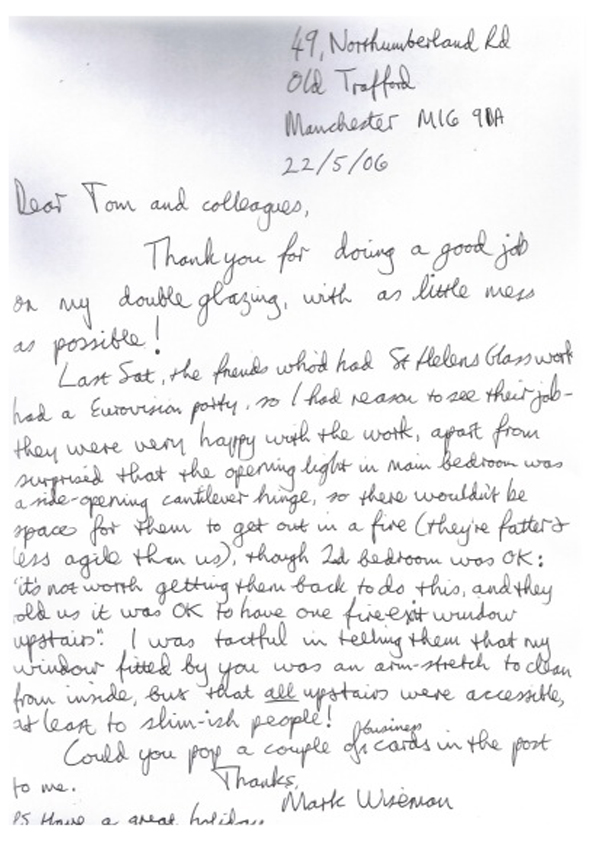 49, Northumberland Rd
Old Trafford
Manchester M16 9BA
22/5/06
Dear Tom and colleagues,
Thank you for doing a good job
on my double glazing, with as little mess
as possible!
Last Sat, the friends who'd had St Helens Glass work
had a Eurovision party, so I had reason to see their job -
they were very happy with the work, apart from
surprised that the opening light in main bedroom was
a side-opening cantilever hinge, so there wouldn't be
space for them to get out in a fire (they're fatter &
less agile than us), though 2d bedroom was OK:
"it's not worth getting them back to do this, and they
told us it was OK to have one fire-exit window
upstairs". I was tactful in telling them that my
window fitted by you was an arm-stretch to clean
from inside, but that all upstairs were accessible,
at least to slim-ish people!
Could you pop a couple of business cards in the post
to me.
Thanks,
Mark Wiseman
PS Have a great holiday